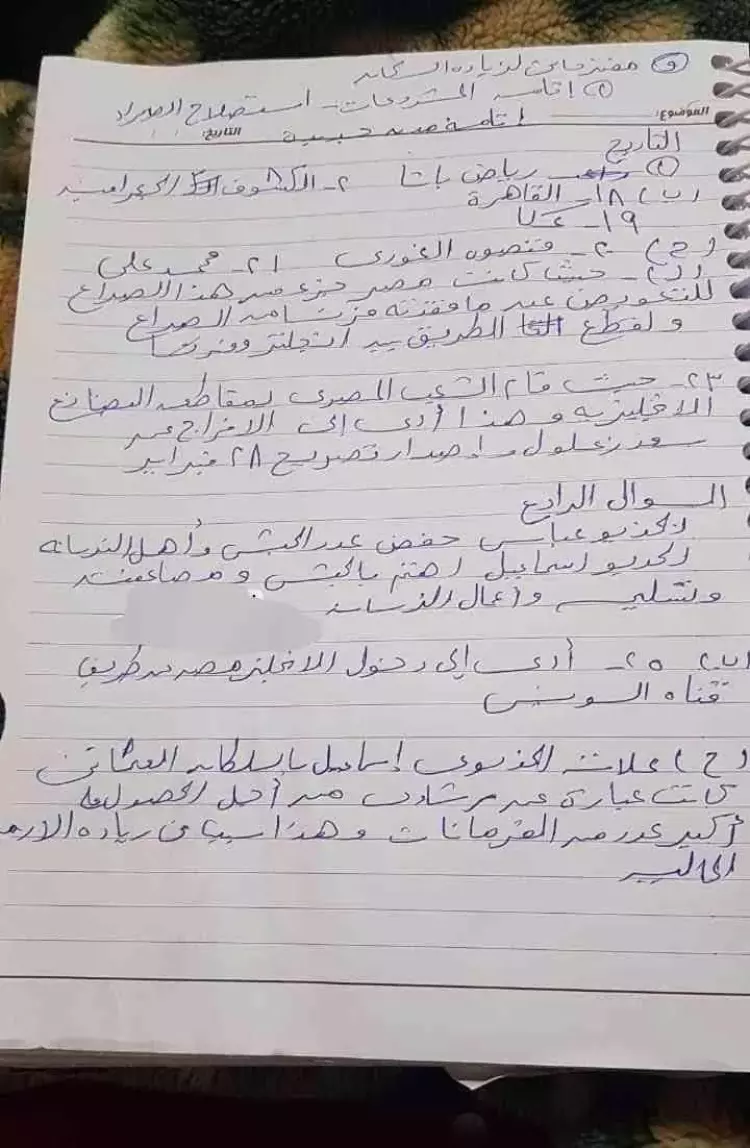 و) مقترحات لزيادة السكان
١) اقامة المشروعات - استصلاح الصحراء
الموضوع: اقامة مدن جديدة
التاريخ:
التاريخ
١) رياض باشا ٢- الكشوف الجغرافية
(ب) ١٨- القاهرة
١٩- عكا
(ج) ٢٠- قنصوه الغورى ٢١- محمد على
(د) - حيث كانت مصر جزء من هذا الصراع
للتعويض عن ما فقدته فرنسا من الصراع
ولقطع الطريق بين انجلترا وفرنسا
٢٣- حيث قام الشعب المصرى بمقاطعة البضائع
الانجليزيه وهذا أدى إلى الافراج عن
سعد زغلول واصدار تصريح ٢٨ فبراير
السوال الرابع
الخديو عباس خفض عدد الجيش وأهل
الخديو اسماعيل اهتم بالجيش و
وتسليح واعمال
(ب) ٢٥- أدى إلى دخول الانجليز مصر عن طريق
قناه السويس
(ج) علاقة الخديوى إسماعيل بالسلطان العثمانى
كانت عبارة عن من أجل الحصول على
أكبر عدد من الفرمانات وهذا سببا فى زياده
الماليه